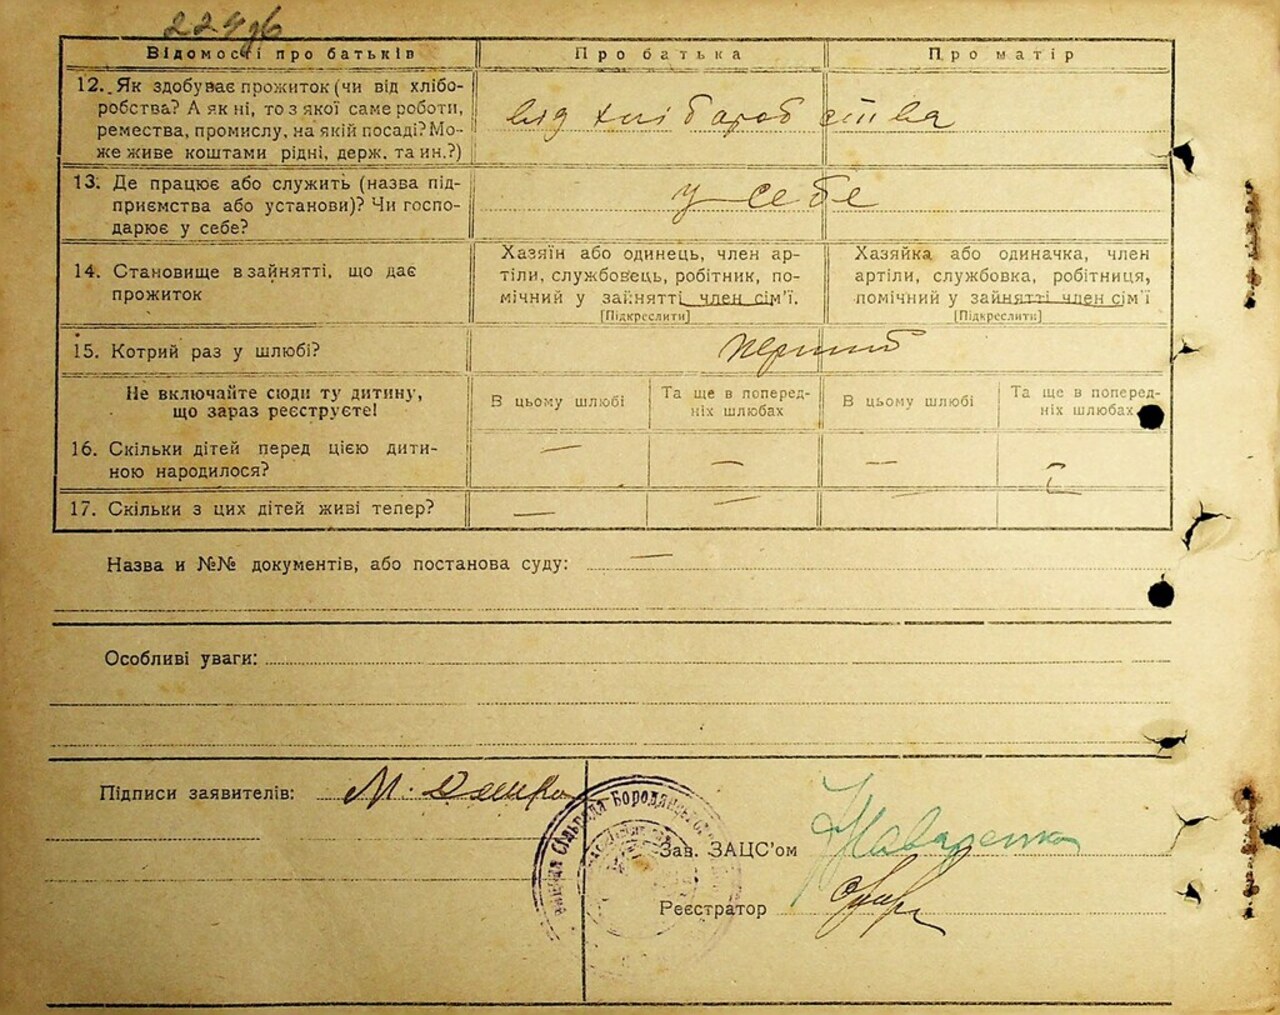 Відомості про батьків
Про батька
Про матір
12. Як здобуває прожиток (чи від хлібо-
робства? А як ні, то з якої саме роботи,
ремества, промислу, на якій посаді? Мо-
же живе коштами рідні, держ. та ин.?)
від хлібаробства
13. Де працює або служить (назва під-
приємства або установи)? Чи госпо-
дарює у себе?
у себе
14. Становище в зайнятті, що дає
прожиток
Хазяїн або одинець, член ар-
тіли, службовець, робітник, по-
мічний у зайнятті член сім'ї.
[Підкреслити]
Хазяйка або одиначка, член
артіли, службовка, робітниця,
помічний у зайнятті член сім'ї
[Підкреслити]
15. Котрий раз у шлюбі?
Не включайте сюди ту дитину,
що зараз реєструєте!
В цьому шлюбі
Та ще в поперед-
ніх шлюбах
В цьому шлюбі
Та ще в поперед-
ніх шлюбах
16. Скільки дітей перед цією дити-
ною народилося?
— — —
17. Скільки з цих дітей живі тепер?
— — —
Назва и №№ документів, або постанова суду: —
Особливі уваги:
Підписи заявителів: М.
Сільрада Бородянського
Зав. ЗАЦС'ом
Реєстратор